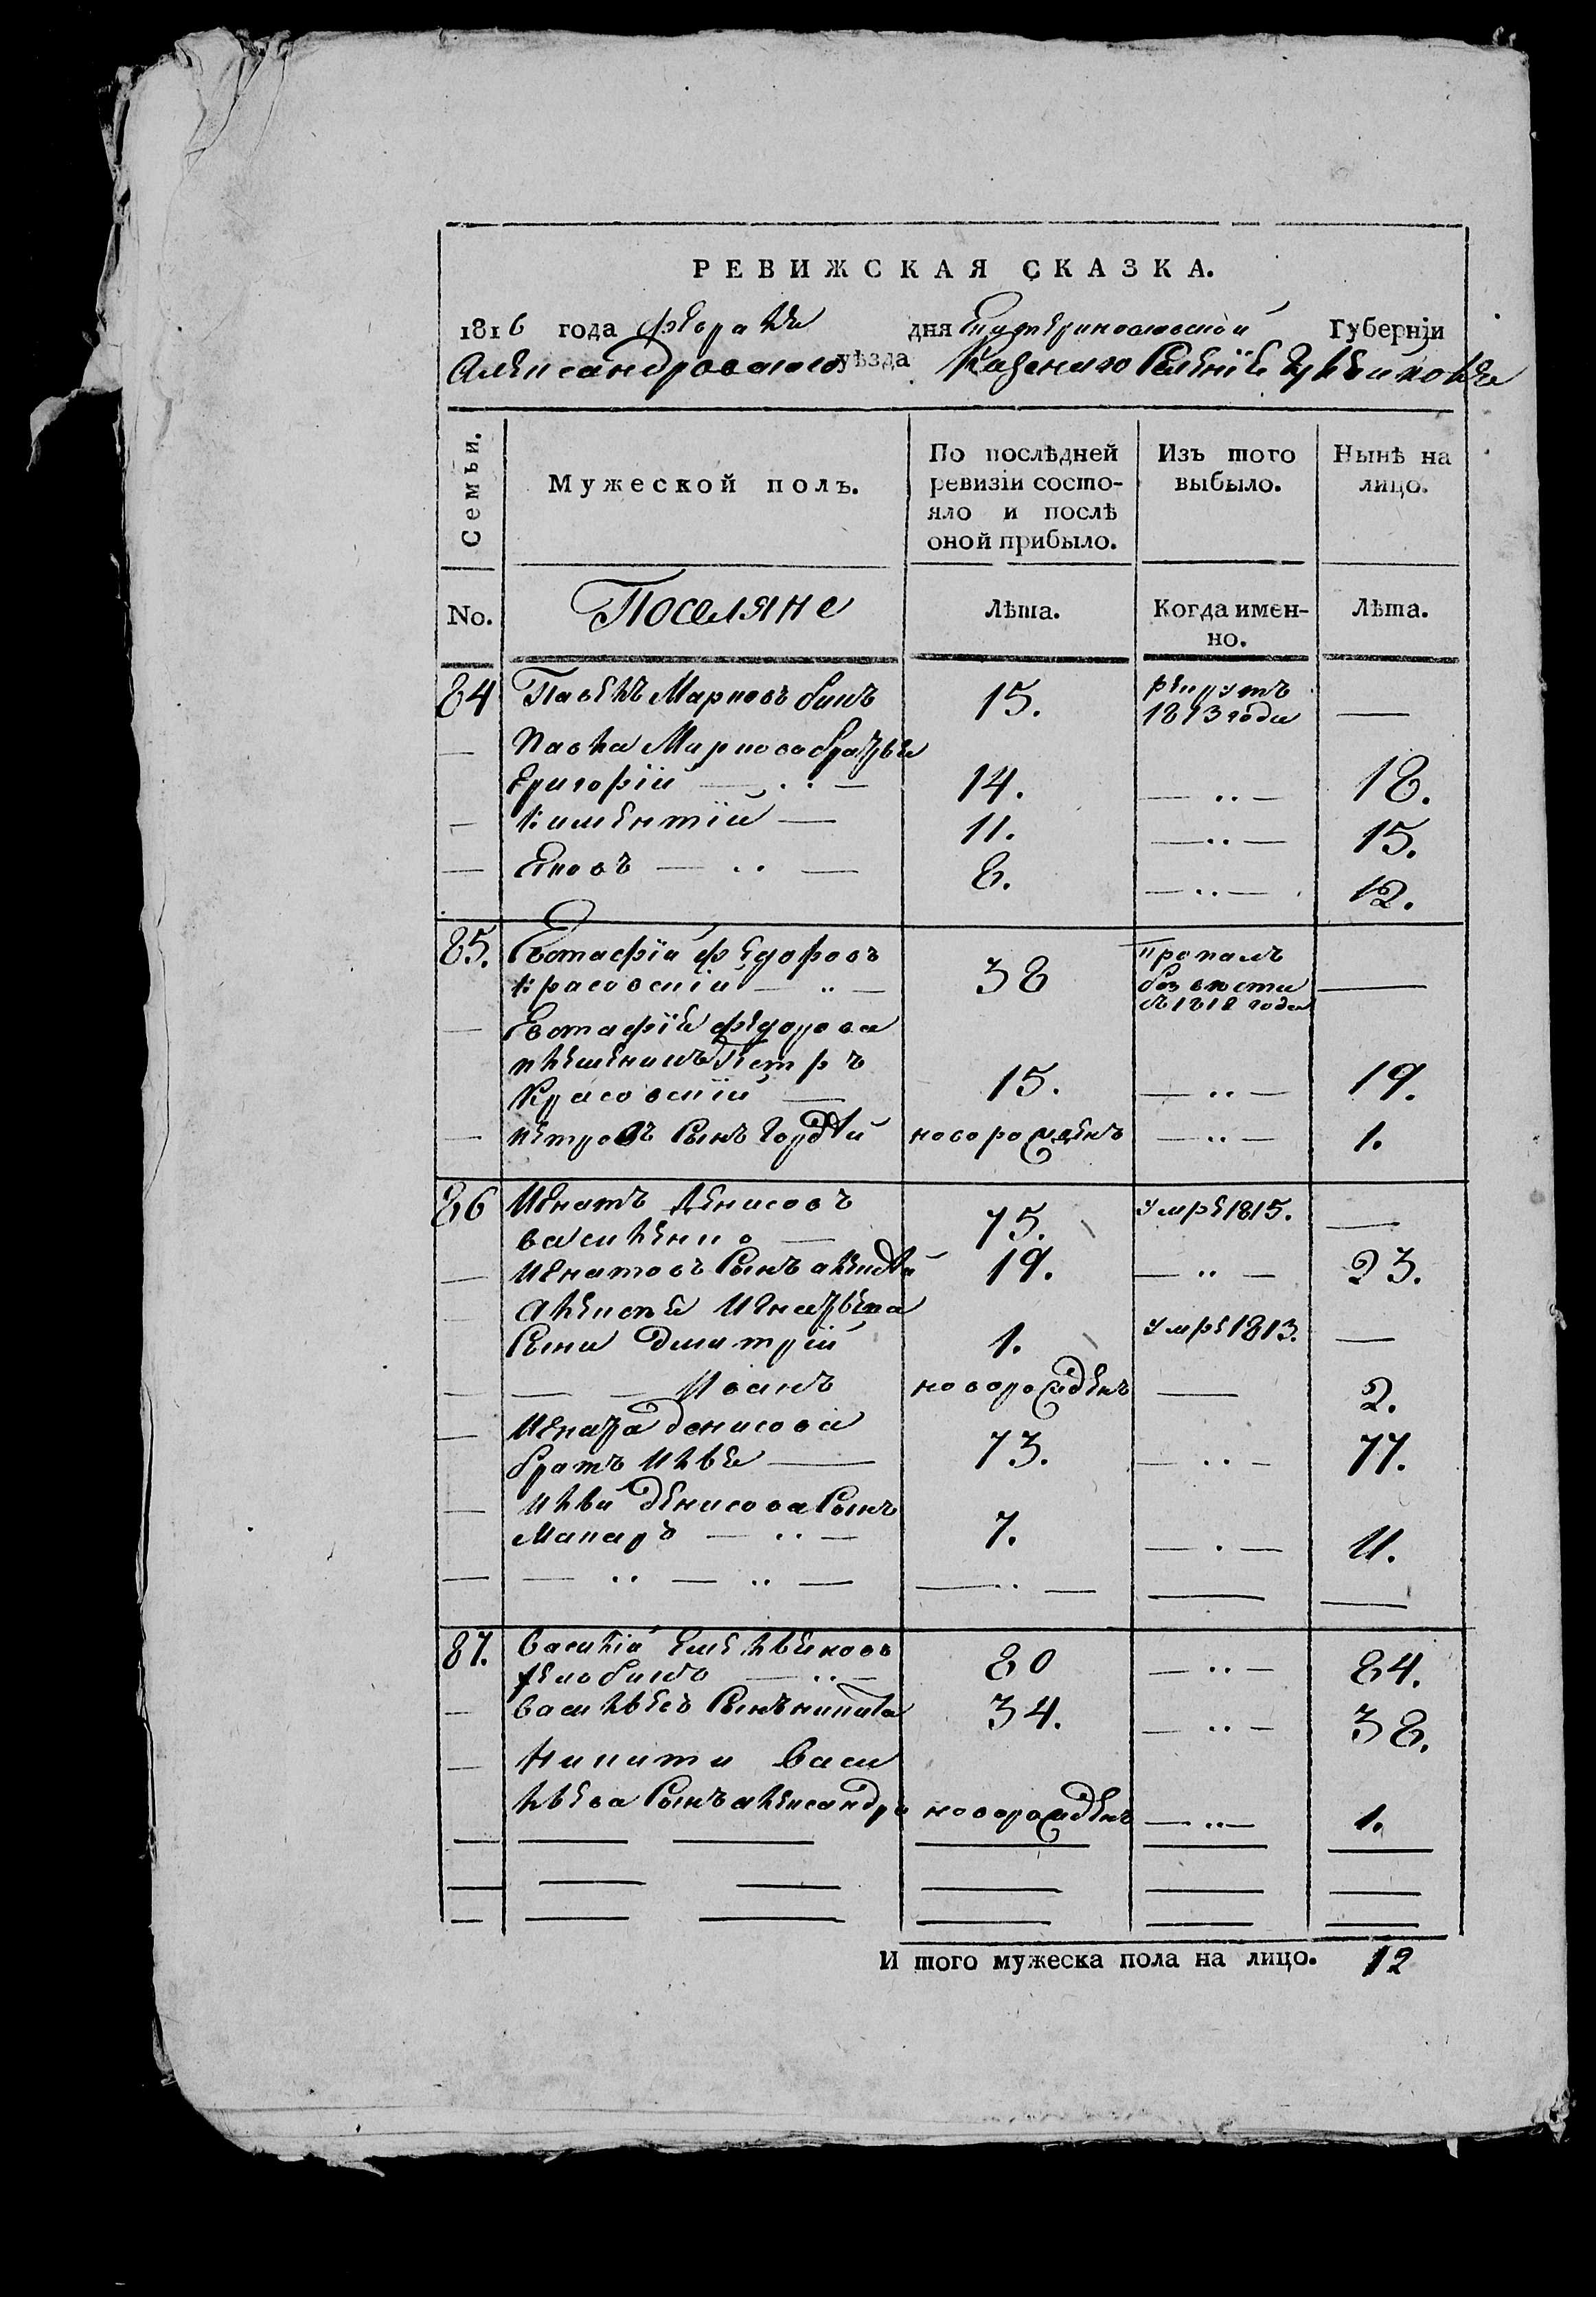 РЕВИЖСКАЯ СКАЗКА.
1816 года февраля дня Екатеринославской Губерніи
Александровскаго уѣзда Казеннаго Селенія
Семьи.
Мужеской полъ.
По послѣдней ревизіи состо-
яло и послѣ
оной прибыло.
Изъ того
выбыло.
Нынѣ на
лицо.
No.
Поселяне
Лѣта.
Когда имен-
но.
Лѣта.
84 Павелъ Марковъ 15. рекрутъ
1813 года —
— Павла Маркова братья
Григорій — .. — 14. — .. — 18.
— Климентій — 11. — .. — 15.
— Яковъ — .. — 8. — .. — 12.
85. Евстафій Федоровъ
Красовскій — .. — 38 пропалъ
без вѣсти
съ 1812 года —
— Евстафія Федорова
племеникъ Петръ
Красовскій — 15. — .. — 19.
— Петровъ Сынъ Гордѣй новорожденъ — .. — 1.
86 Игнатъ Денисовъ
Василенко — 75. умре 1815. —
— Игнатовъ Сынъ алексѣй 19. — .. — 23.
— алексея Игнатьева
Сыни Дмитрій 1. умре 1813. —
— — — Иванъ новорожденъ — 2.
— Игната денисова
братъ Илья — 73. — .. — 77.
— Ильи денисова Сынъ
Макаръ — .. — 7. — . — 11.
87. Василій Емельяновъ
— .. — 80 — .. — 84.
— васильевъ Сынъ никита 34. — .. — 38.
— Никити Васи
льева Сынъ александръ новорожденъ — .. — 1.
И того мужеска пола на лицо. 12